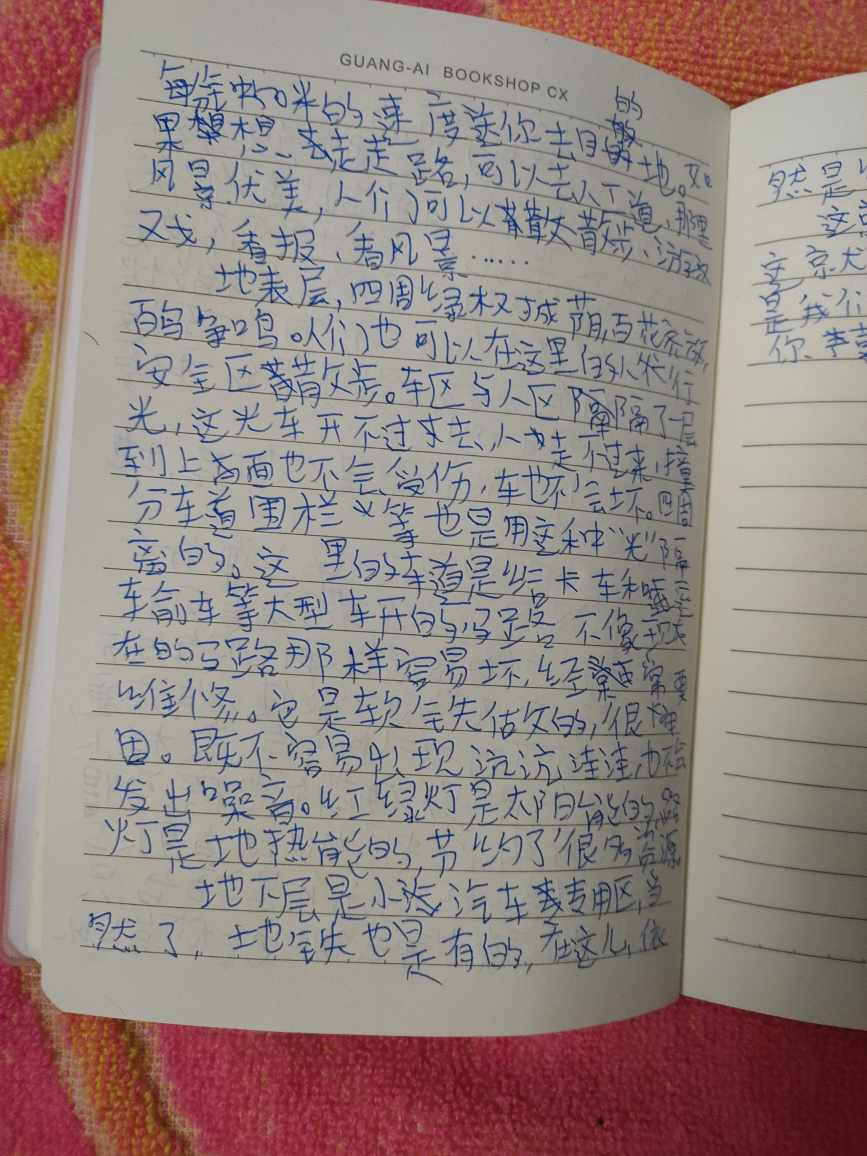 GUANG-AI BOOKSHOP CX
的
每 米的速度送你去目 地。如
果想 去走走路,可以去人工道,那里
风景优美,人们可以散步、游
戏,看报、看风景……
地表层,四周绿树成荫,百花 放,
百鸟争鸣。人们也可以在这里的人行
安全区散步。车区与人区隔了一层
光,这光车开不过去,人也走不过来,撞
到上面也不会受伤,车也不会坏。四周
分车道围栏 等也是用这种“光”隔
离的。这里的车道是给卡车和
车 车等大型车开的,马路不像现
在的马路那样容易坏,经常要
维修。它是软 做的,很
固。既不容易出现坑坑洼洼,也不会
发出噪音。红绿灯是太阳能的,路
灯是地热能的,节约了很多资源
地下层是小 汽车专用区,当
然了,地铁也是有的,在这儿,依
然是
这
京
是我们
你、